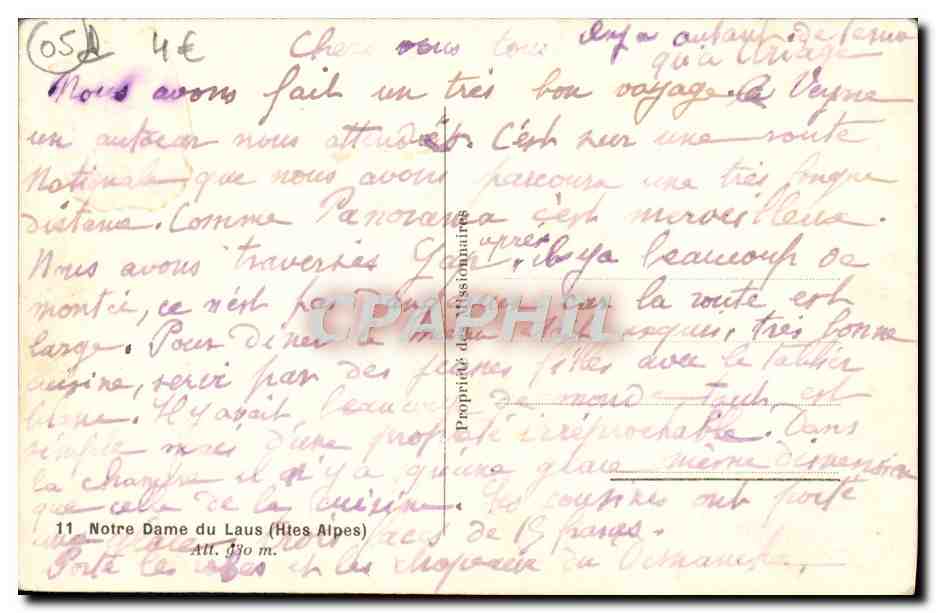 05 4€
Chers vous tous
il y a autant de
Nous avons fait un très bon voyage, à Veyne
un autocar nous attendait. C'est sur une route
Nationale que nous avons parcouru une très longue
distance. Comme Panorama c'est merveilleux.
Nous avons traversés Gap, après il y a beaucoup de
montée, ce n'est pas car la route est
large. Pour Diner très bonne
cuisine, servi par des jeunes filles avec le tablier
blanc. Il y avait beaucoup de monde, tout est
simple mais d'une propreté irréprochable. Dans
la chambre il n'y a qu'une glace même dimension
que celle de la cuisine. cousines ont porté
de 15 francs.
Porte les robes et les chapeaux du Dimanche.
11 Notre Dame du Laus (Htes Alpes)
Alt. 930 m.
Propriété des Missionnaires
CPAPHIL